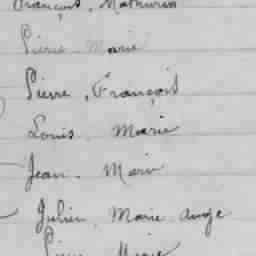 François, Mathurin
Pierre Marie
Pierre, François
Louis Marie
Jean. Marie
Julien, Marie ange
Pierre Marie